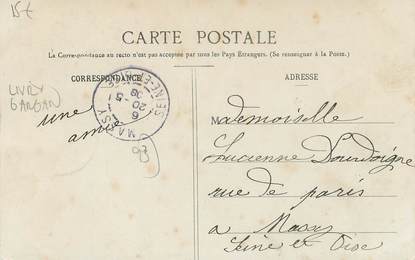 15€
CARTE POSTALE
La Correspondance au recto n'est pas acceptée par tous les Pays Étrangers. (Se renseigner à la Poste.)
CORRESPONDANCE
ADRESSE
LIVRY
GARGAN
une
amie
MASSY
20 - 5
93
Mademoiselle
Lucienne Dourdoigne
rue de paris
a Massy
Seine et Oise